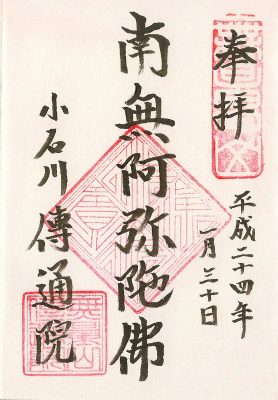 奉拝
平成二十四年
一月三十日
南無阿弥陀佛
小石川傳通院